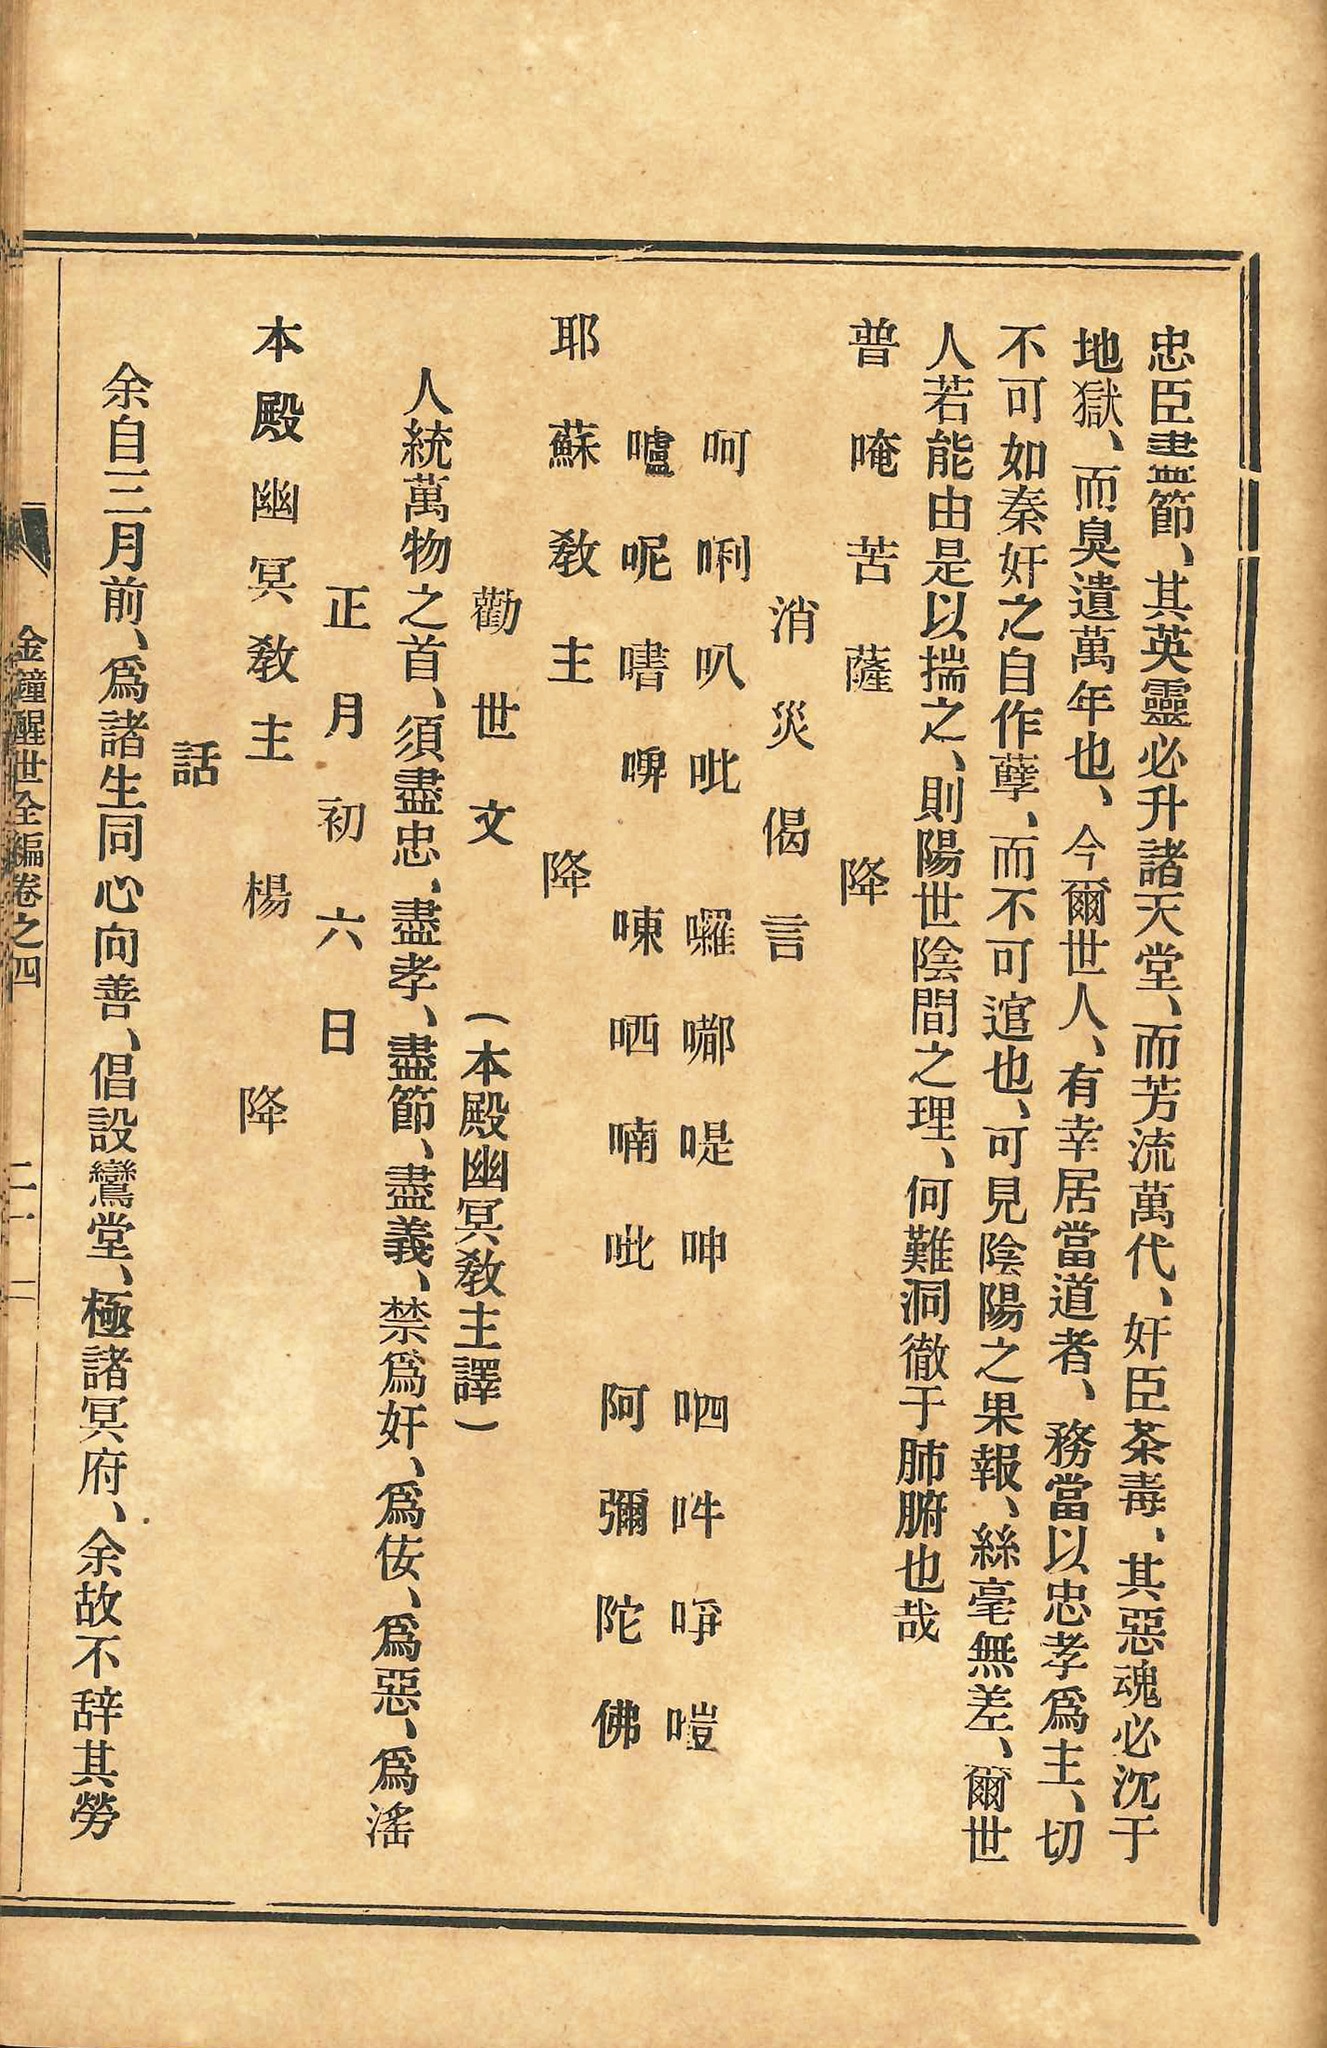 忠臣盡節、其英靈必升諸天堂、而芳流萬代、奸臣荼毒、其惡魂必沉于
地獄、而臭遺萬年也、今爾世人、有幸居當道者、務當以忠孝爲主、切
不可如秦奸之自作孽、而不可逭也、可見陰陽之果報、絲毫無差、爾世
人若能由是以揣之、則陽世陰間之理、何難洞徹于肺腑也哉
普唵苦薩　降
消災偈言
呵唎叭吡　囉嘟喤呻　呬吽噑嘊
嚧呢嗜啤　㖦哂喃吡　阿彌陀佛
耶蘇敎主　降
勸世文　（本殿幽冥敎主譯）
人統萬物之首、須盡忠、盡孝、盡節、盡義、禁爲奸、爲侫、爲惡、爲滛
正月初六日
本殿幽冥敎主　楊　降
話
余自三月前、爲諸生同心向善、倡設鸞堂、極諸冥府、余故不辞其勞
金鐘醒世全編卷之四